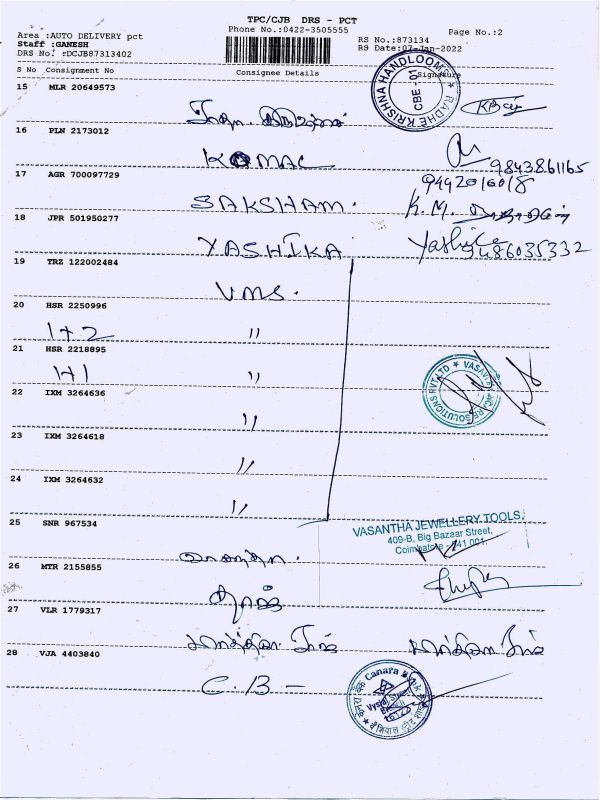 TPC/CJB DRS - PCT
Area :AUTO DELIVERY pct
Phone No.:0422-3505555
Page No.:2
Staff :GANESH
RS No.:873134
DRS No. :DCJB87313402
RS Date:07-Jan-2022
S No Consignment No Consignee Details Signature
RADHE KRISHNA HANDLOOMS
CBE
15 MLR 20649573
16 PLN 2173012
KOMAL
9843861165
17 AGR 700097729
9442016018
SAKSHAM.
K.M.
18 JPR 501950277
YASHIKA
Yashika
9486035332
19 TRZ 122002484
VMS.
20 HSR 2250996
1+2 "
21 HSR 2218895
1+1 "
22 IXM 3264636
"
23 IXM 3264618
"
24 IXM 3264632
"
25 SNR 967534
VASANTHA JEWELLERY TOOLS,
409-B, Big Bazaar Street,
Coimbatore - 641 001.
வசந்தா.
26 MTR 2155855
27 VLR 1779317
28 VJA 4403840
C.B -
Canara
Vysial Street
Branch